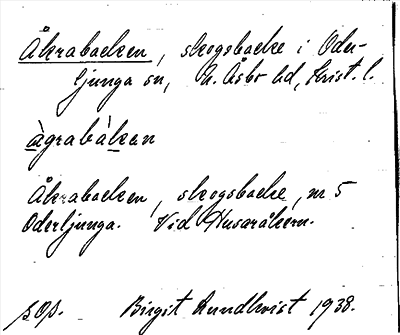 Åkrabacken, skogsbacke i Oder-
ljunga sn, N. Åsbo hd, Krist. l.
àgrabàkan
Åkrabacken, skogsbacke, nr 5
Oderljunga. Vid Husaråkern.
Birgit Lundkvist 1938.